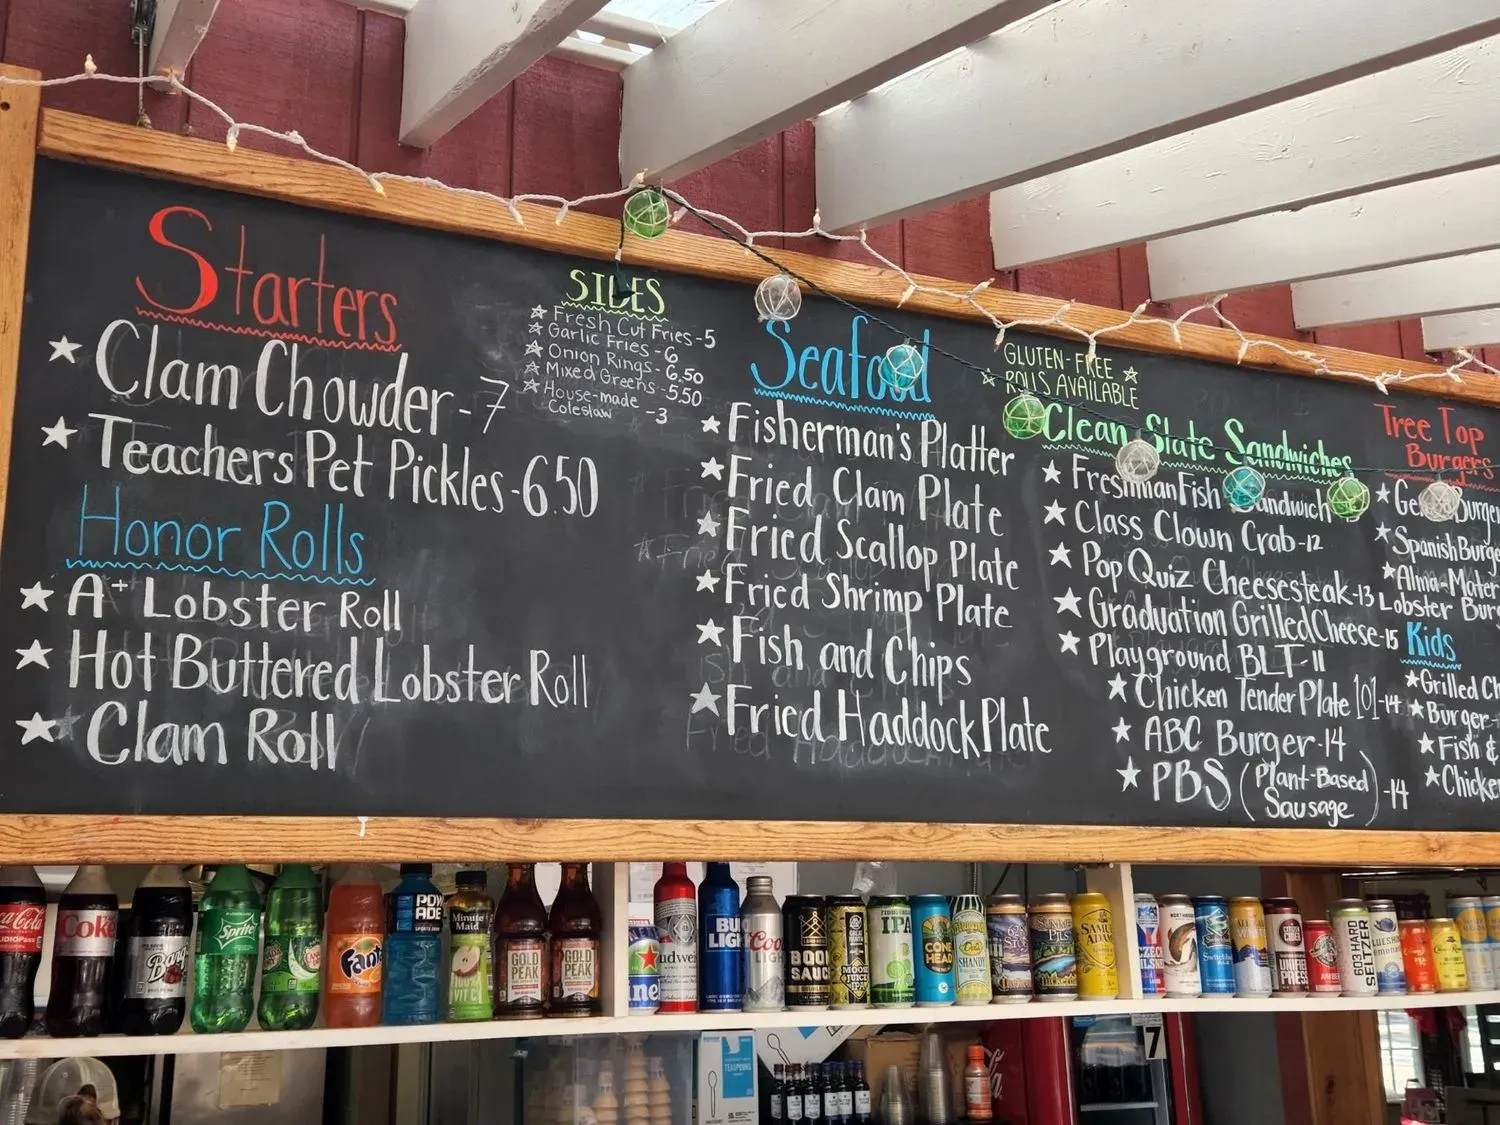 Starters
Clam Chowder - 7
Teachers Pet Pickles - 6.50
Honor Rolls
A+ Lobster Roll
Hot Buttered Lobster Roll
Clam Roll
SIDES
Fresh Cut Fries - 5
Garlic Fries - 6
Onion Rings - 6.50
Mixed Greens - 5.50
House-made
Coleslaw - 3
Seafood
Fisherman's Platter
Fried Clam Plate
Fried Scallop Plate
Fried Shrimp Plate
Fish and Chips
Fried Haddock Plate
GLUTEN-FREE
ROLLS AVAILABLE
Clean Slate Sandwiches
Freshman Fish Sandwich
Class Clown Crab - 12
Pop Quiz Cheesesteak - 13
Graduation Grilled Cheese - 15
Playground BLT - 11
Chicken Tender Plate 101 - 14
ABC Burger - 14
PBS (Plant-Based
Sausage) - 14
Tree Top
Burgers
Burger
Spanish Burge
Alma-Mater
Lobster Burg
Kids
Grilled Ch
Burger -
Fish &
Chicken
Coca-Cola
Coke
Sprite
Fanta
POWERADE
Minute Maid
GOLD PEAK
GOLD PEAK
Budweiser
BUD LIGHT
Coors LIGHT
BOOM SAUCE
MOOSE JUICE IPA
IPA
CONE HEAD
SHANDY
SAMUEL ADAMS
UNIFIED PRESS
603 HARD SELTZER
TEASPOONS
7